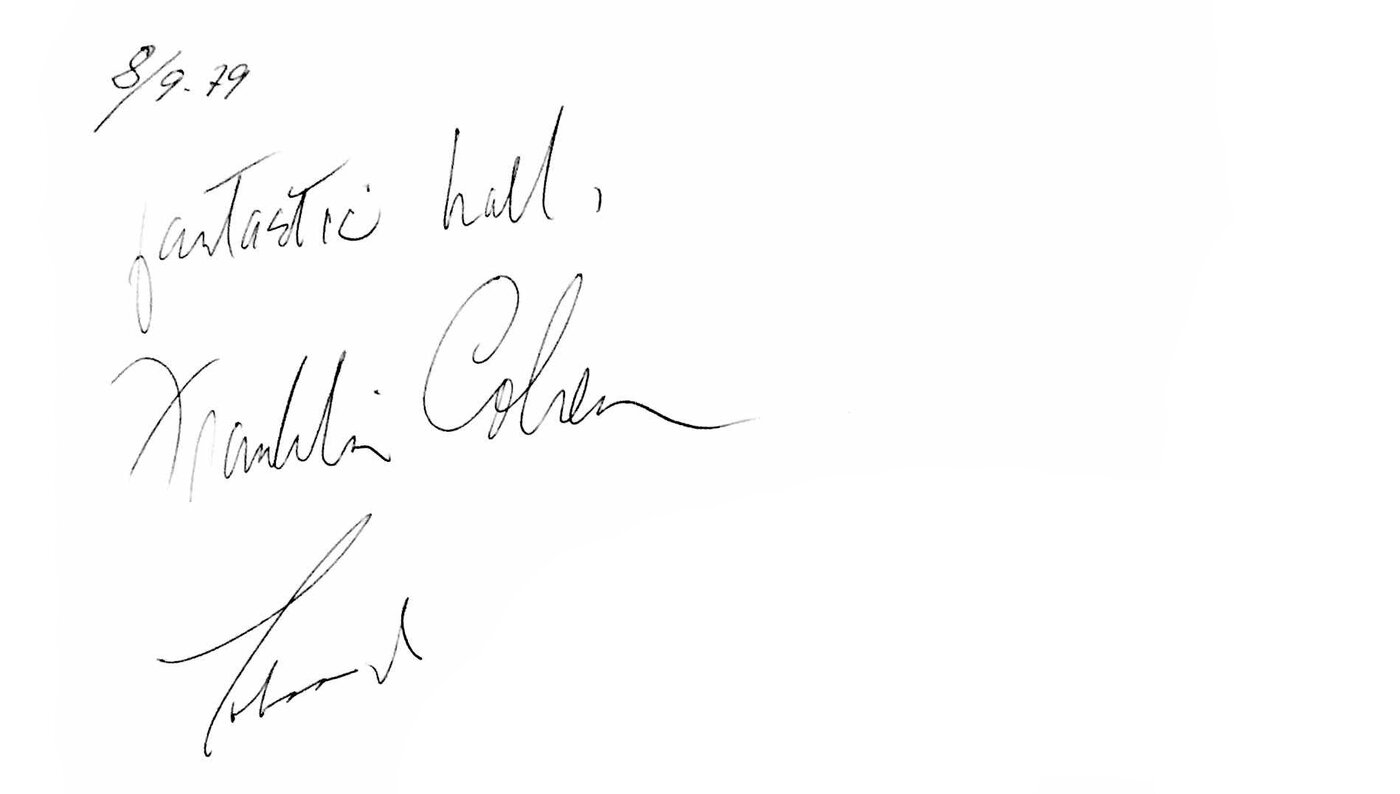 8/9.79
fantastic hall,
Franklin Cohen